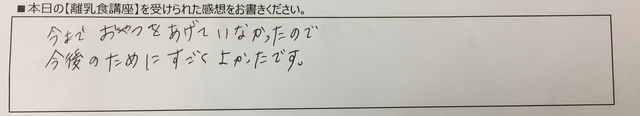 ■本日の【離乳食講座】を受けられた感想をお書きください。
今まで おやつをあげて いなかったので
今後のために すごく よかったです。